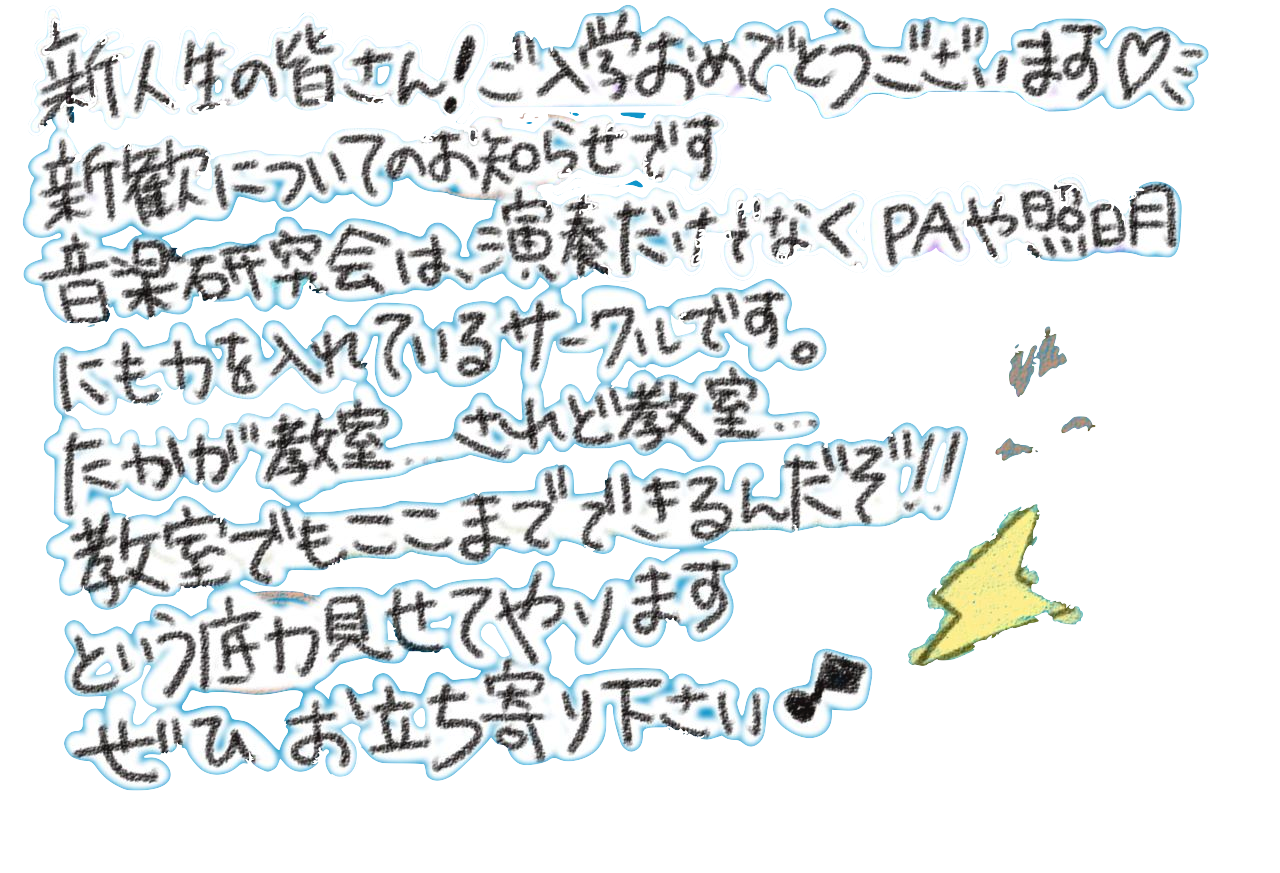 新人生の皆さん!ご入学おめでとうございます♡
新歓についてのお知らせです
音楽研究会は、演奏だけでなく PAや照明
にも力を入れているサークルです。
たかが教室……されど教室…
教室でもここまでできるんだぞ!!
という底力見せてやります
ぜひ お立ち寄り下さい♪